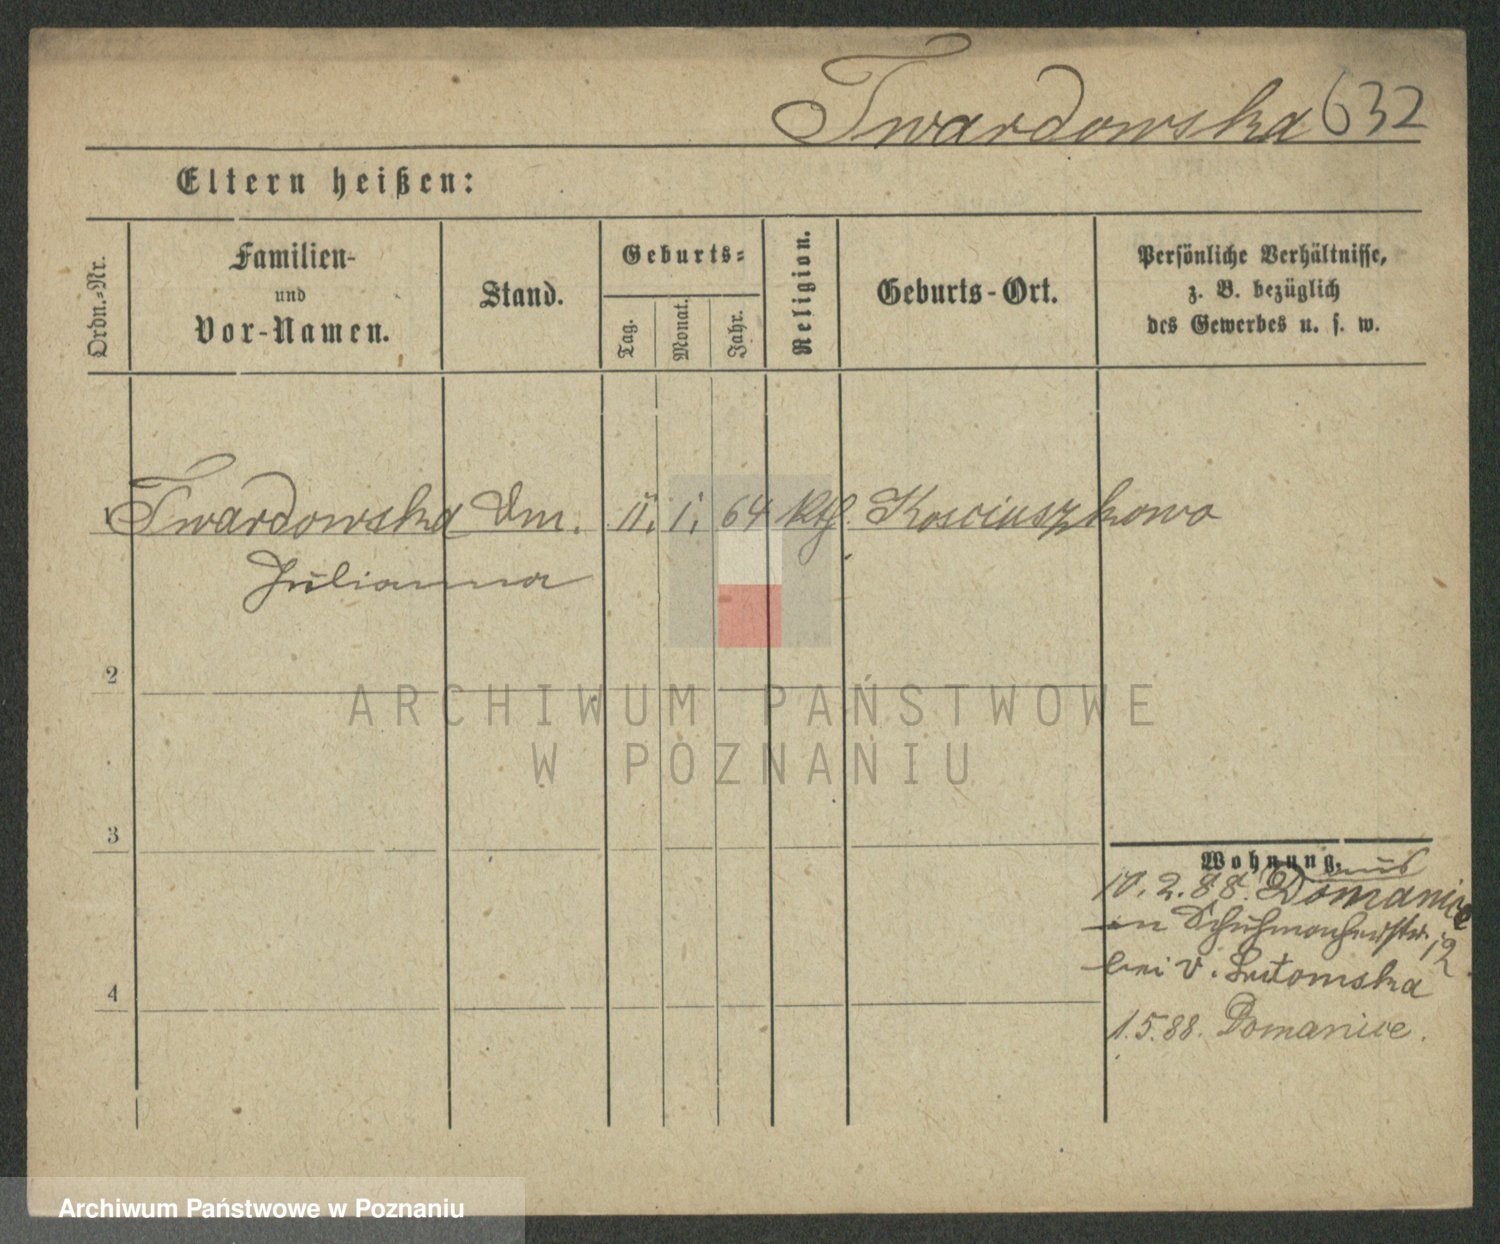 Twardowska 632
Eltern heißen:
Ordn.-Nr.
Familien-
und
Vor-Namen.
Stand.
Geburts-
Tag.
Monat.
Jahr.
Religion.
Geburts-Ort.
Persönliche Verhältnisse,
z. B. bezüglich
des Gewerbes u. s. w.
1 Twardowska Dm. 11. 1. 64 kth. Kosciuszkowo
Julianna
2
ARCHIWUM PAŃSTWOWE
W POZNANIU
3
Wohnung.
10.2.88. aus Domanice
in 12
bei v. Lutomska
4
1.5.88. Domanice.
Archiwum Państwowe w Poznaniu